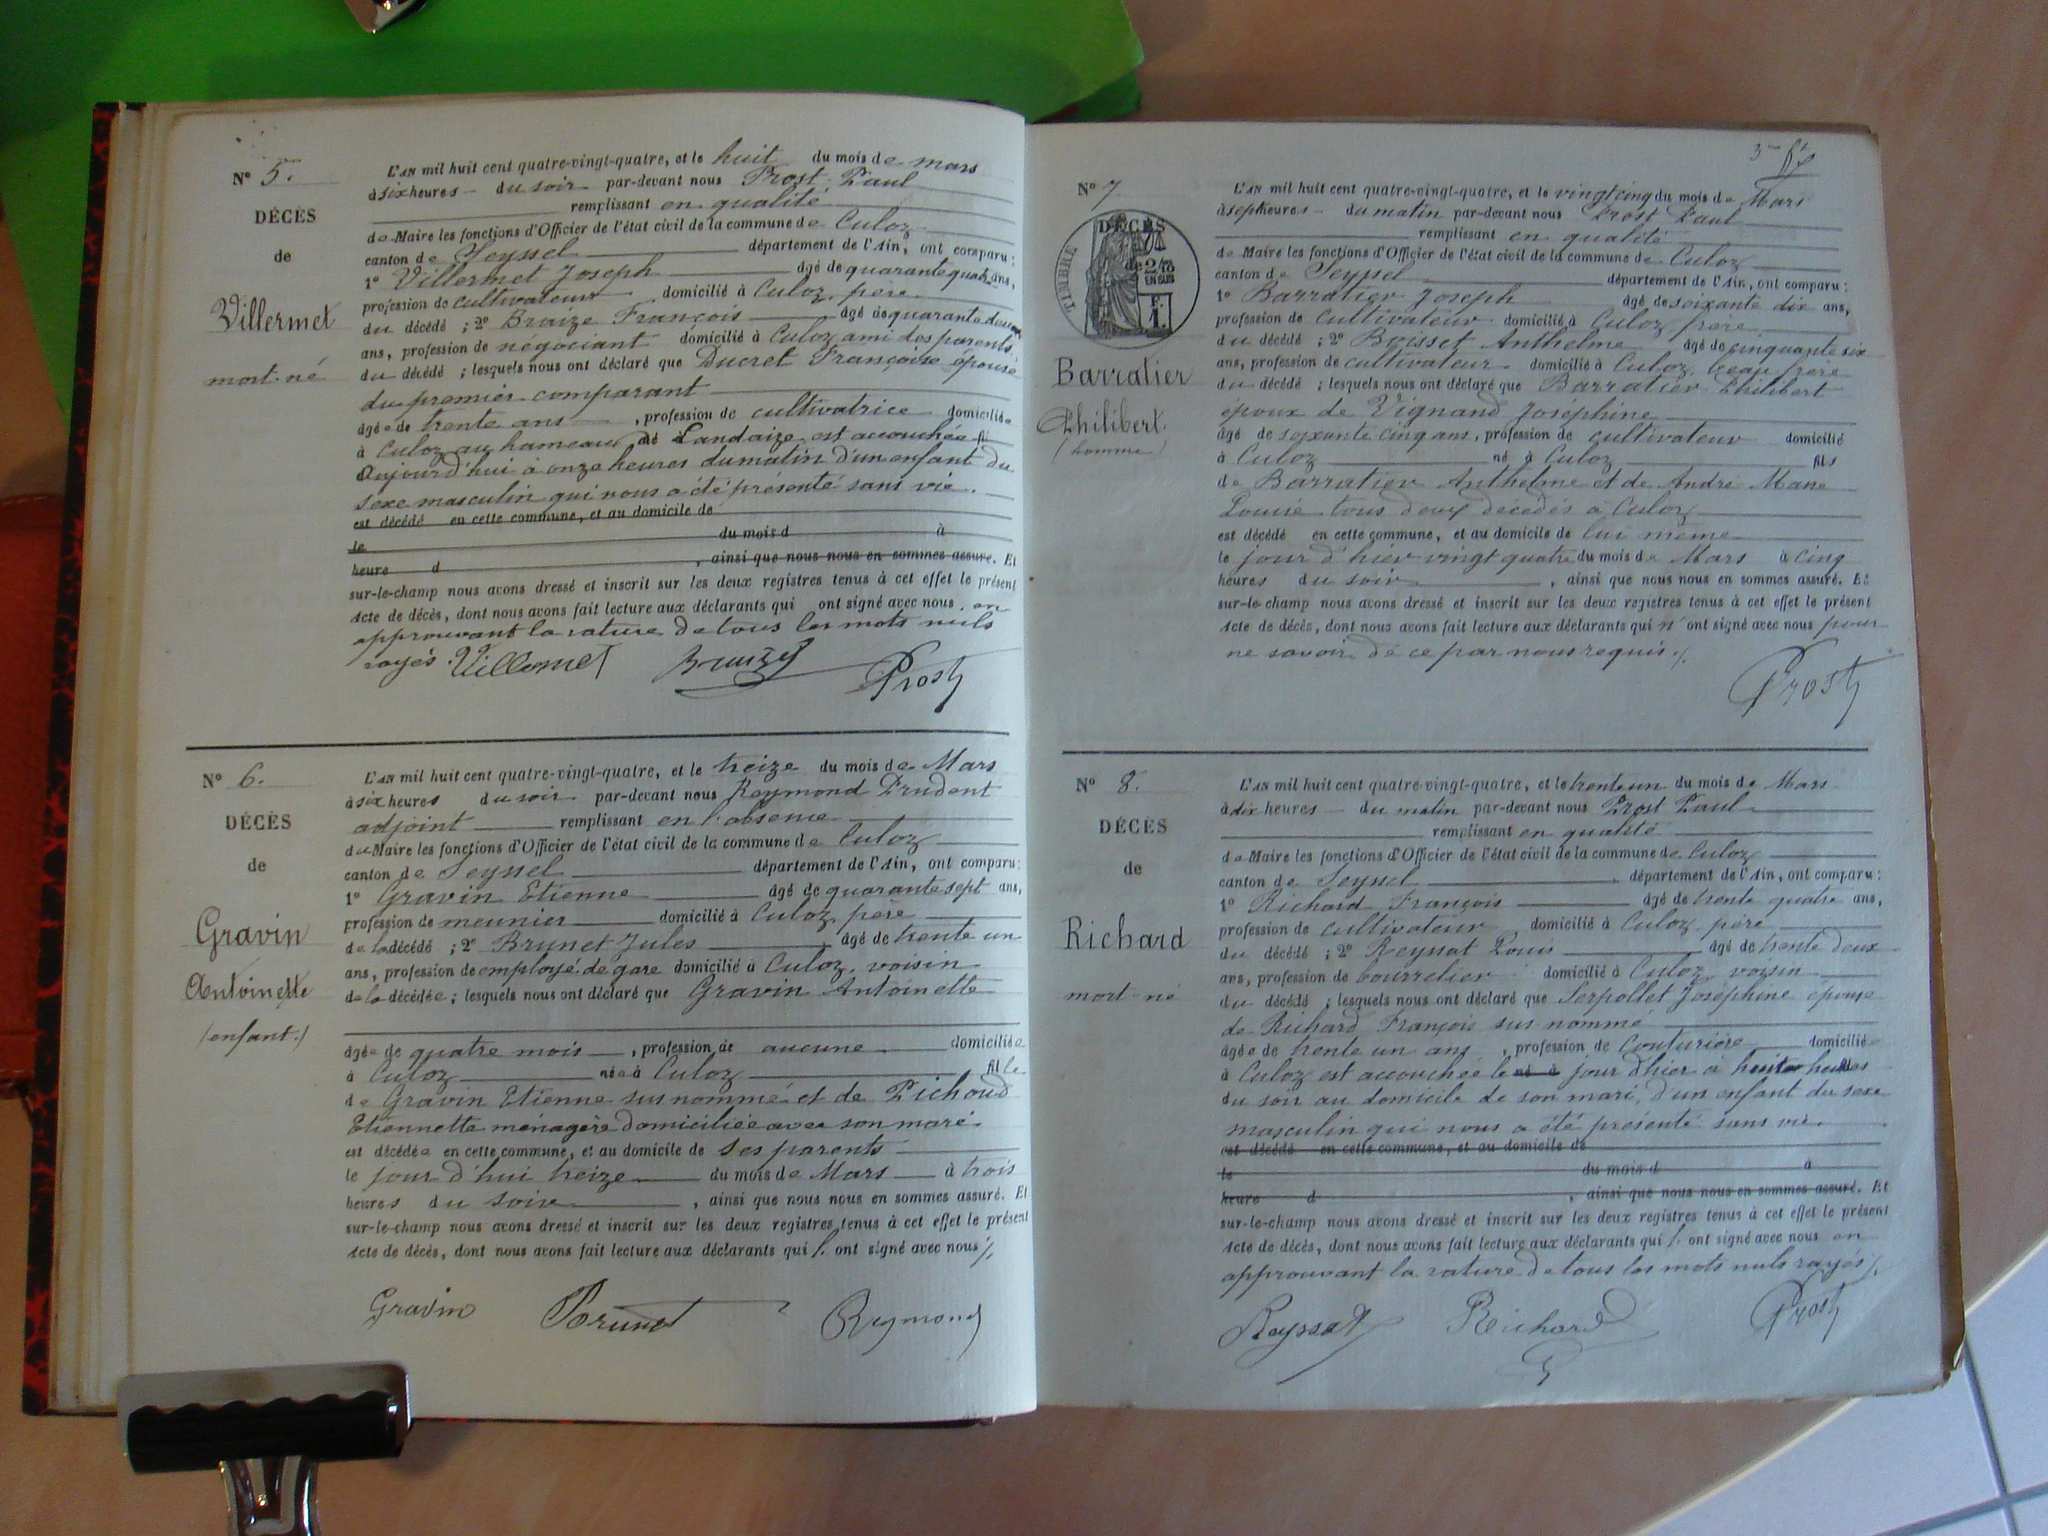 N° 5.
DÉCÈS
de
Villermet
mort-né
L'AN mil huit cent quatre-vingt-quatre, et le huit du mois de mars
à six heures du soir par-devant nous Prost Paul
remplissant en qualité
de Maire les fonctions d'Officier de l'état civil de la commune de Culoz
canton de Seyssel département de l'Ain, ont comparu :
1° Villermet Joseph âgé de quarante quatre ans,
profession de cultivateur domicilié à Culoz, père
du décédé ; 2° Braize François âgé de quarante deux
ans, profession de négociant domicilié à Culoz ami des parents
du décédé ; lesquels nous ont déclaré que Ducret Françoise épouse
du premier comparant
âgée de trente ans, profession de cultivatrice domiciliée
à Culoz au hameau de Landaize est accouchée
Aujourd'hui à onze heures du matin d'un enfant du
sexe masculin qui nous a été présenté sans vie.
est décédé en cette commune, et au domicile de
le du mois d à
heure d , ainsi que nous nous en sommes assuré. Et
sur-le-champ nous avons dressé et inscrit sur les deux registres tenus à cet effet le présent
Acte de décès, dont nous avons fait lecture aux déclarants qui ont signé avec nous, en
approuvant la rature de tous les mots nuls
rayés. Villermet Prost
N° 6.
DÉCÈS
de
Gravin
Antoinette
(enfant.)
L'AN mil huit cent quatre-vingt-quatre, et le treize du mois de Mars
à six heures du soir par-devant nous Reymond Prudent
adjoint remplissant en l'absence
du Maire les fonctions d'Officier de l'état civil de la commune de Culoz
canton de Seyssel département de l'Ain, ont comparu :
1° Gravin Etienne âgé de quarante sept ans,
profession de meunier domicilié à Culoz, père
de la décédé ; 2° Brunet Jules âgé de trente un
ans, profession de employé de gare domicilié à Culoz, voisin
de la décédée ; lesquels nous ont déclaré que Gravin Antoinette
âgée de quatre mois, profession de aucune domiciliée
à Culoz née à Culoz fille
de Gravin Etienne susnommé et de Pichoud
Etiennette ménagère domiciliée avec son mari.
est décédée en cette commune, et au domicile de ses parents
le jour d'hui treize du mois de Mars à trois
heures du soir, ainsi que nous nous en sommes assuré. Et
sur-le-champ nous avons dressé et inscrit sur les deux registres tenus à cet effet le présent
Acte de décès, dont nous avons fait lecture aux déclarants qui ont signé avec nous
Gravin Brunet Reymond
N° 7
DÉCÈS
TIMBRE
de
2/10 EN SUS
F.
1.
Barratier
Philibert.
(homme)
L'AN mil huit cent quatre-vingt-quatre, et le vingt cinq du mois de Mars
à sept heures du matin par-devant nous Prost Paul
remplissant en qualité
de Maire les fonctions d'Officier de l'état civil de la commune de Culoz
canton de Seyssel département de l'Ain, ont comparu :
1° Barratier Joseph âgé de soixante dix ans,
profession de cultivateur domicilié à Culoz frère
du décédé ; 2° Boisset Anthelme âgé de cinquante six
ans, profession de cultivateur domicilié à Culoz, beau frère
du décédé ; lesquels nous ont déclaré que Barratier Philibert
époux de Vignand Joséphine
âgé de soixante cinq ans, profession de cultivateur domicilié
à Culoz né à Culoz fils
de Barratier Anthelme et de André Marie
Louise tous deux décédés à Culoz
est décédé en cette commune, et au domicile de lui même
le jour d'hier vingt quatre du mois de Mars à cinq
heures du soir, ainsi que nous nous en sommes assuré. Et
sur-le-champ nous avons dressé et inscrit sur les deux registres tenus à cet effet le présent
Acte de décès, dont nous avons fait lecture aux déclarants qui n'ont signé avec nous pour
ne savoir de ce par nous requis.
Prost
N° 8.
DÉCÈS
de
Richard
mort-né
L'AN mil huit cent quatre-vingt-quatre, et le trente un du mois de Mars
à dix heures du matin par-devant nous Prost Paul
remplissant en qualité
de Maire les fonctions d'Officier de l'état civil de la commune de Culoz
canton de Seyssel département de l'Ain, ont comparu :
1° Richard François âgé de trente quatre ans,
profession de cultivateur domicilié à Culoz, père
du décédé ; 2° Reyssat Louis âgé de trente deux
ans, profession de bourrelier domicilié à Culoz, voisin
du décédé ; lesquels nous ont déclaré que Serpollet Joséphine épouse
de Richard François sus nommé
âgée de trente un ans, profession de Couturière domiciliée
à Culoz est accouchée le né à jour d'hier à huit heures
du soir au domicile de son mari, d'un enfant du sexe
masculin qui nous a été présenté sans vie.
est décédé en cette commune, et au domicile de
le du mois d à
heure d , ainsi que nous nous en sommes assuré. Et
sur-le-champ nous avons dressé et inscrit sur les deux registres tenus à cet effet le présent
Acte de décès, dont nous avons fait lecture aux déclarants qui ont signé avec nous en
approuvant la rature de tous les mots nuls rayés.
Reyssat Richard Prost